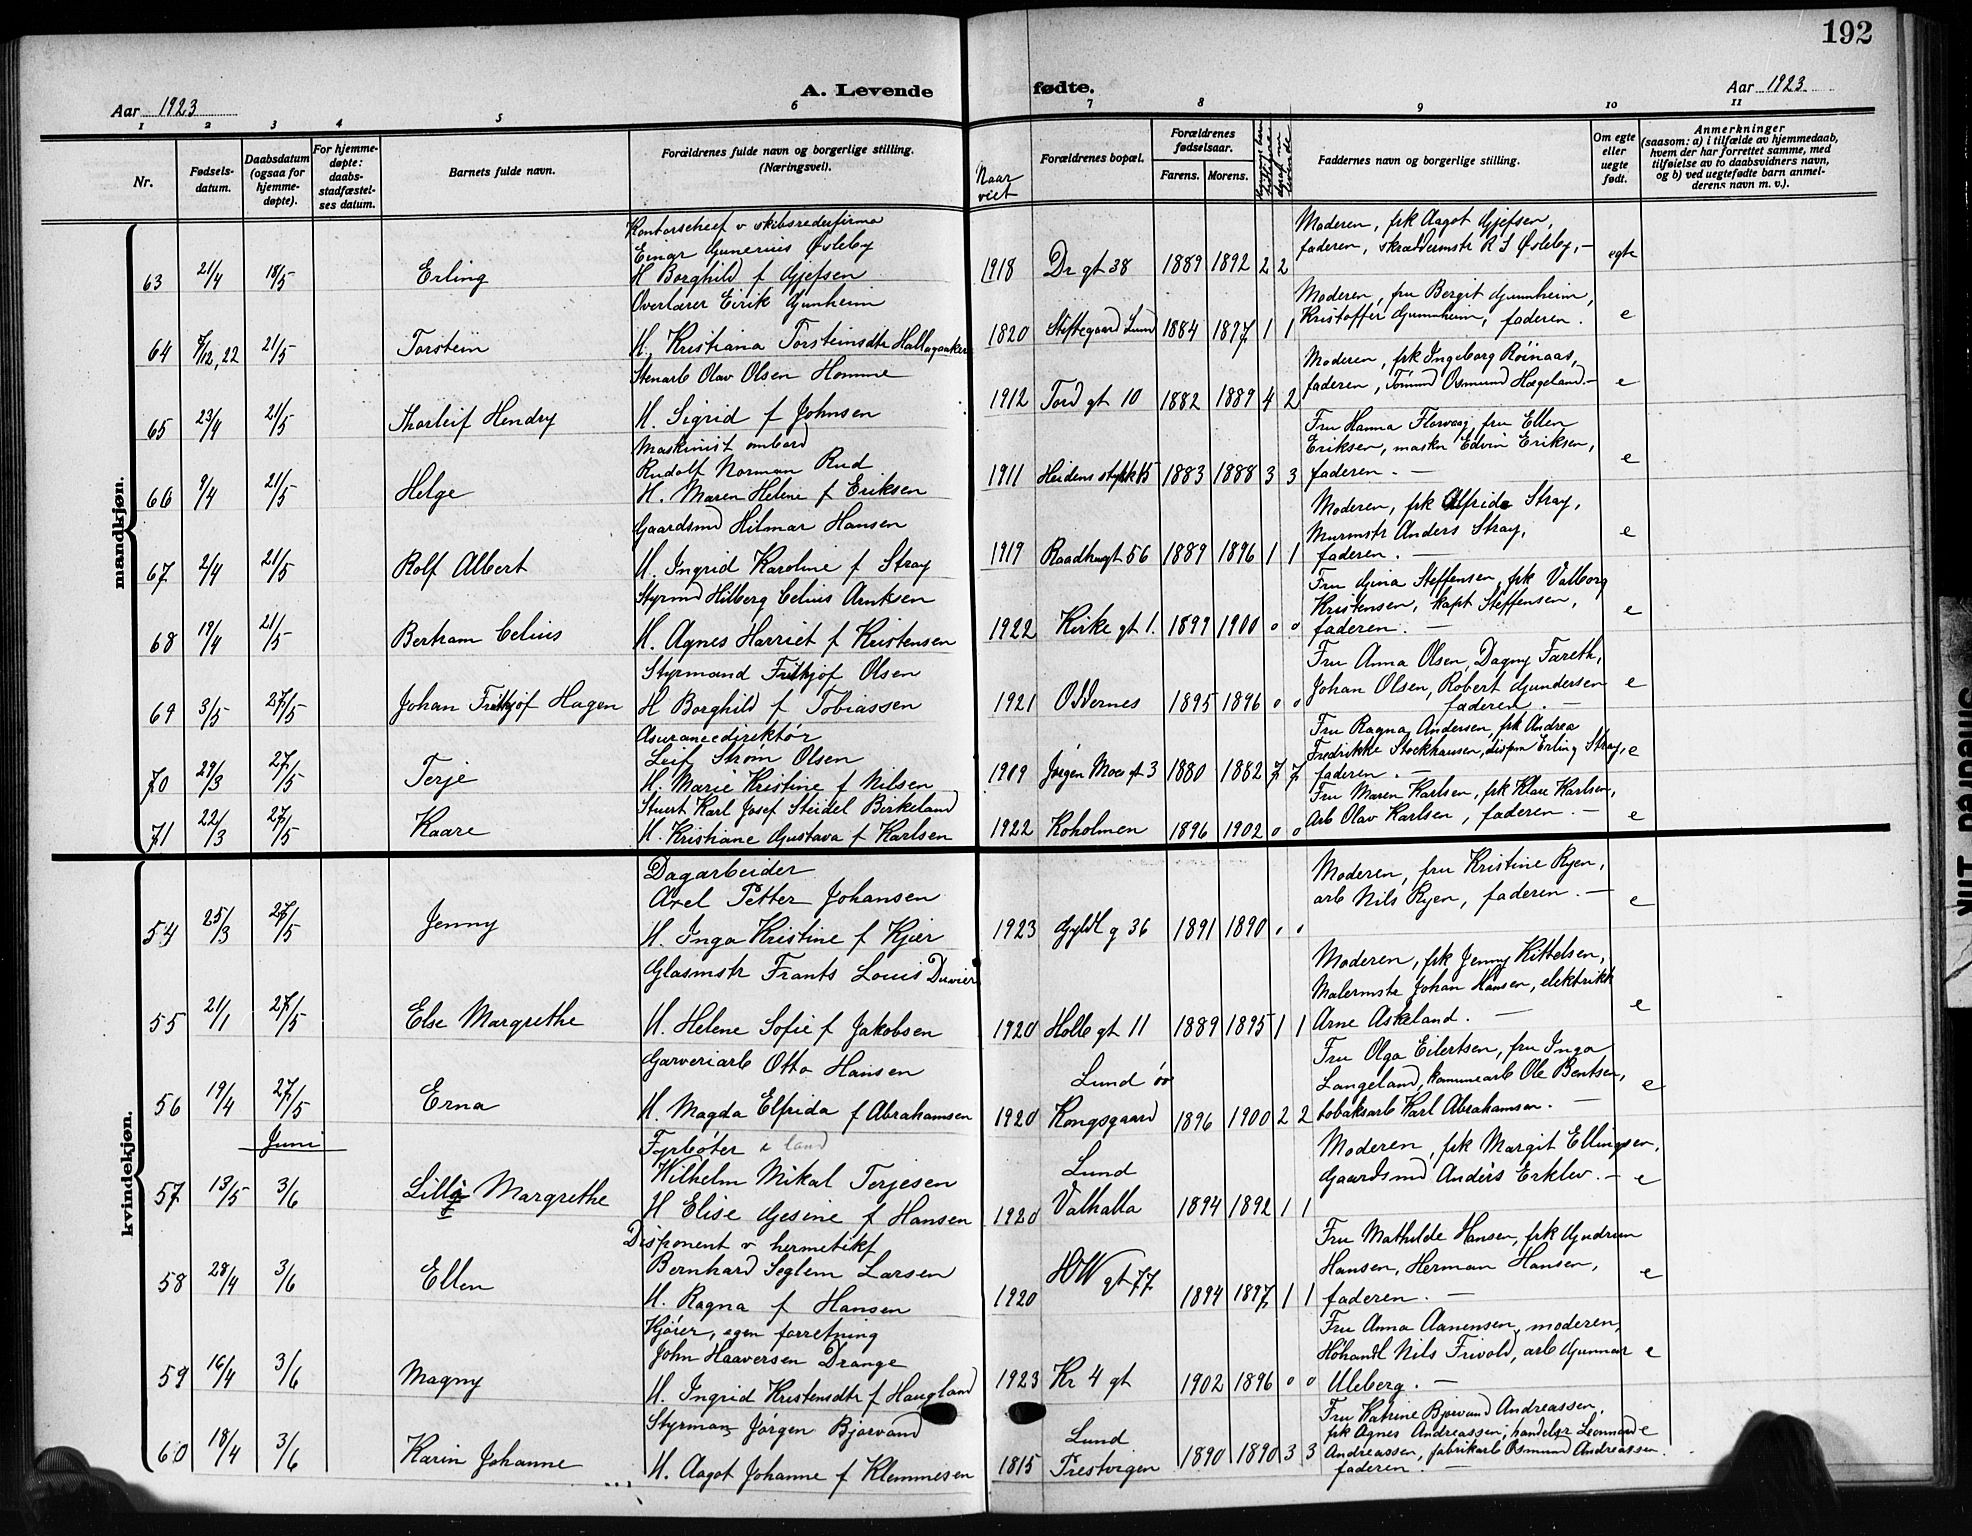 192
Aar 1923
A. Levende
fødte.
Aar 1923
1 2 3 4 5 6 7 8 9 10 11
Nr.
Fødsels-
datum.
Daabsdatum
(ogsaa for
hjemme-
døpte).
For hjemme-
døpte:
daabs-
stadfæstel-
ses datum.
Barnets fulde navn.
Forældrenes fulde navn og borgerlige stilling.
(Næringsvei).
Naar
viet
Forældrenes bopæl.
Forældrenes
fødselsaar.
Farens. Morens.
Faddernes navn og borgerlige stilling.
Om egte
eller
uegte
født.
Anmerkninger
(saasom: a) i tilfælde av hjemmedaab,
hvem der har forrettet samme, med
tilføielse av to daabsvidners navn,
og b) ved uegtefødte barn anmel-
derens navn m. v.).
mandkjøn.
63 21/4 18/5 Erling
Kontorschef v skibsrederfirma
Einar Gunerius Øsleby
H Borghild f Gjefsen
1918 Dr gt 38 1889 1892 2 2
Moderen, frk Aagot Gjefsen,
faderen, skræddermstr R S Øsleby, –
egte
64 7/12, 22 21/5 Torstein
Overlærer Eirik Gunheim
H. Kristiana Torsteinsdtr Hallaganker
1820 Stiftegaard Lund 1884 1897 1 1
Moderen, fru Bergit Gunnheim,
Kristoffer Gunnheim, faderen.
e
65 23/4 21/5 Thorleif Hendry
Stenarb Olav Olsen Homme
H. Sigrid f Johnsen
1912 Tord gt 10 1882 1889 4 2
Moderen, frk Ingeborg Røinaas,
faderen, Tømmd Osmund Hægeland. –
e
66 9/4 21/5 Helge
Maskinist ombord
Rudolf Norman Rud
H. Maren Helene f Eriksen
1911 Heidens stykk 15 1883 1888 3 3
Fru Hanna Florvaag, fru Ellen
Eriksen, maskn Edvin Eriksen,
faderen. –
e
67 2/4 21/5 Rolf Albert
Gaardsmd Hilmar Hansen
H. Ingrid Karoline f Stray
1919 Raadhusgt 56 1889 1896 1 1
Moderen, frk Alfride Stray,
Murmstr Anders Stray,
faderen. –
e
68 19/4 21/5 Bertram Celius
Styrmd Hilberg Celius Arntsen
H. Agnes Harriet f Kristensen
1922 Kirke gt 1. 1899 1900 0 0
Fru Gina Steffensen, frk Valborg
Kristensen, kapt Steffensen,
faderen. –
e
69 3/5 27/5 Johan Frithjof Hagen
Styrmand Frithjof Olsen
H Borghild f Tobiassen
1921 Oddernes 1895 1896 0 0
Fru Anna Olsen, Dagny Fareth,
Johan Olsen, Robert Gundersen
faderen. –
e
70 29/3 27/5 Terje
Asurancedirektør
Leif Strøm Olsen
H. Marie Kristine f Nilsen
1909 Jørgen Moes gt 3 1880 1882 7 7
Fru Ragna Andersen, frk Andrea
Fredrikke Stockhausen, dispon Erling Stray,
faderen. –
e
71 22/3 27/5 Kaare
Stuert Karl Josef Steidel Birkeland
H. Kristiane Gustava f Karlsen
1922 Koholmen 1896 1902 0 0
Fru Maren Karlsen, frk Klare Karlsen,
Arb Olav Karlsen, faderen. –
e
kvindekjøn.
54 25/3 27/5 Jenny
Dagarbeider
Axel Petter Johansen
H. Inga Kristine f Kjær
1923 Gyldl g 36 1891 1890 0 0
Moderen, fru Kristine Ryen,
arb Nils Ryen, faderen. –
e
55 21/1 27/5 Else Margrethe
Glasmstr Frants Louis Duvier
H. Helene Sofie f Jakobsen
1920 Holbgt 11 1889 1895 1 1
Moderen, frk Jenny Kittelsen,
Malermstr Johan Hansen, elektrikk
Arne Askeland. –
e
56 19/4 27/5 Erna
Garveriarb Otto Hansen
H. Magda Elfrida f Abrahamsen
1920
Lund øv
Kongsgaard 1896 1900 2 2
Fru Olga Eilertsen, fru Inga
Langeland, komunearb Ole Bentsen,
tobaksarb Karl Abrahamsen. –
e
Juni
57 13/5 3/6 Lilly Margrethe
Fyrbøter i land
Wilhelm Mikal Terjesen
H Elise Gesine f Hansen
1920
Lund
Valhalla 1894 1892 1 1
Moderen, frk Margit Ellingsen,
Gaardsmd Anders Erklev. –
e
58 28/4 3/6 Ellen
Disponent v hermetikf
Bernhard Seglem Larsen
H. Ragna f Hansen
1920 HW gt 77 1894 1897 1 1
Fru Mathilde Hansen, frk Gudrun
Hansen, Herman Hansen,
faderen. –
e
59 16/4 3/6 Magny
Kjører, egen forretning
John Haaversen Drange
H. Ingrid Kristensdtr f Haugland
1923 Kr 4 gt 1902 1896 0 0
Fru Anna Aanensen, moderen,
Høhandl Nils Frivold, arb Gunnar
Uleberg. –
e
60 18/4 3/6 Karin Johanne
Styrman Jørgen Bjorvand
H. Aagot Johanne f Klemmesen
1815
Lund
Prestvigen 1890 1890 3 3
Fru Katrine Bjorvand Andreassen,
frk Agnes Andreassen, handelsr Leonnard
Andreassen, fabrikarb Osmund Andreassen.
faderen. –
e